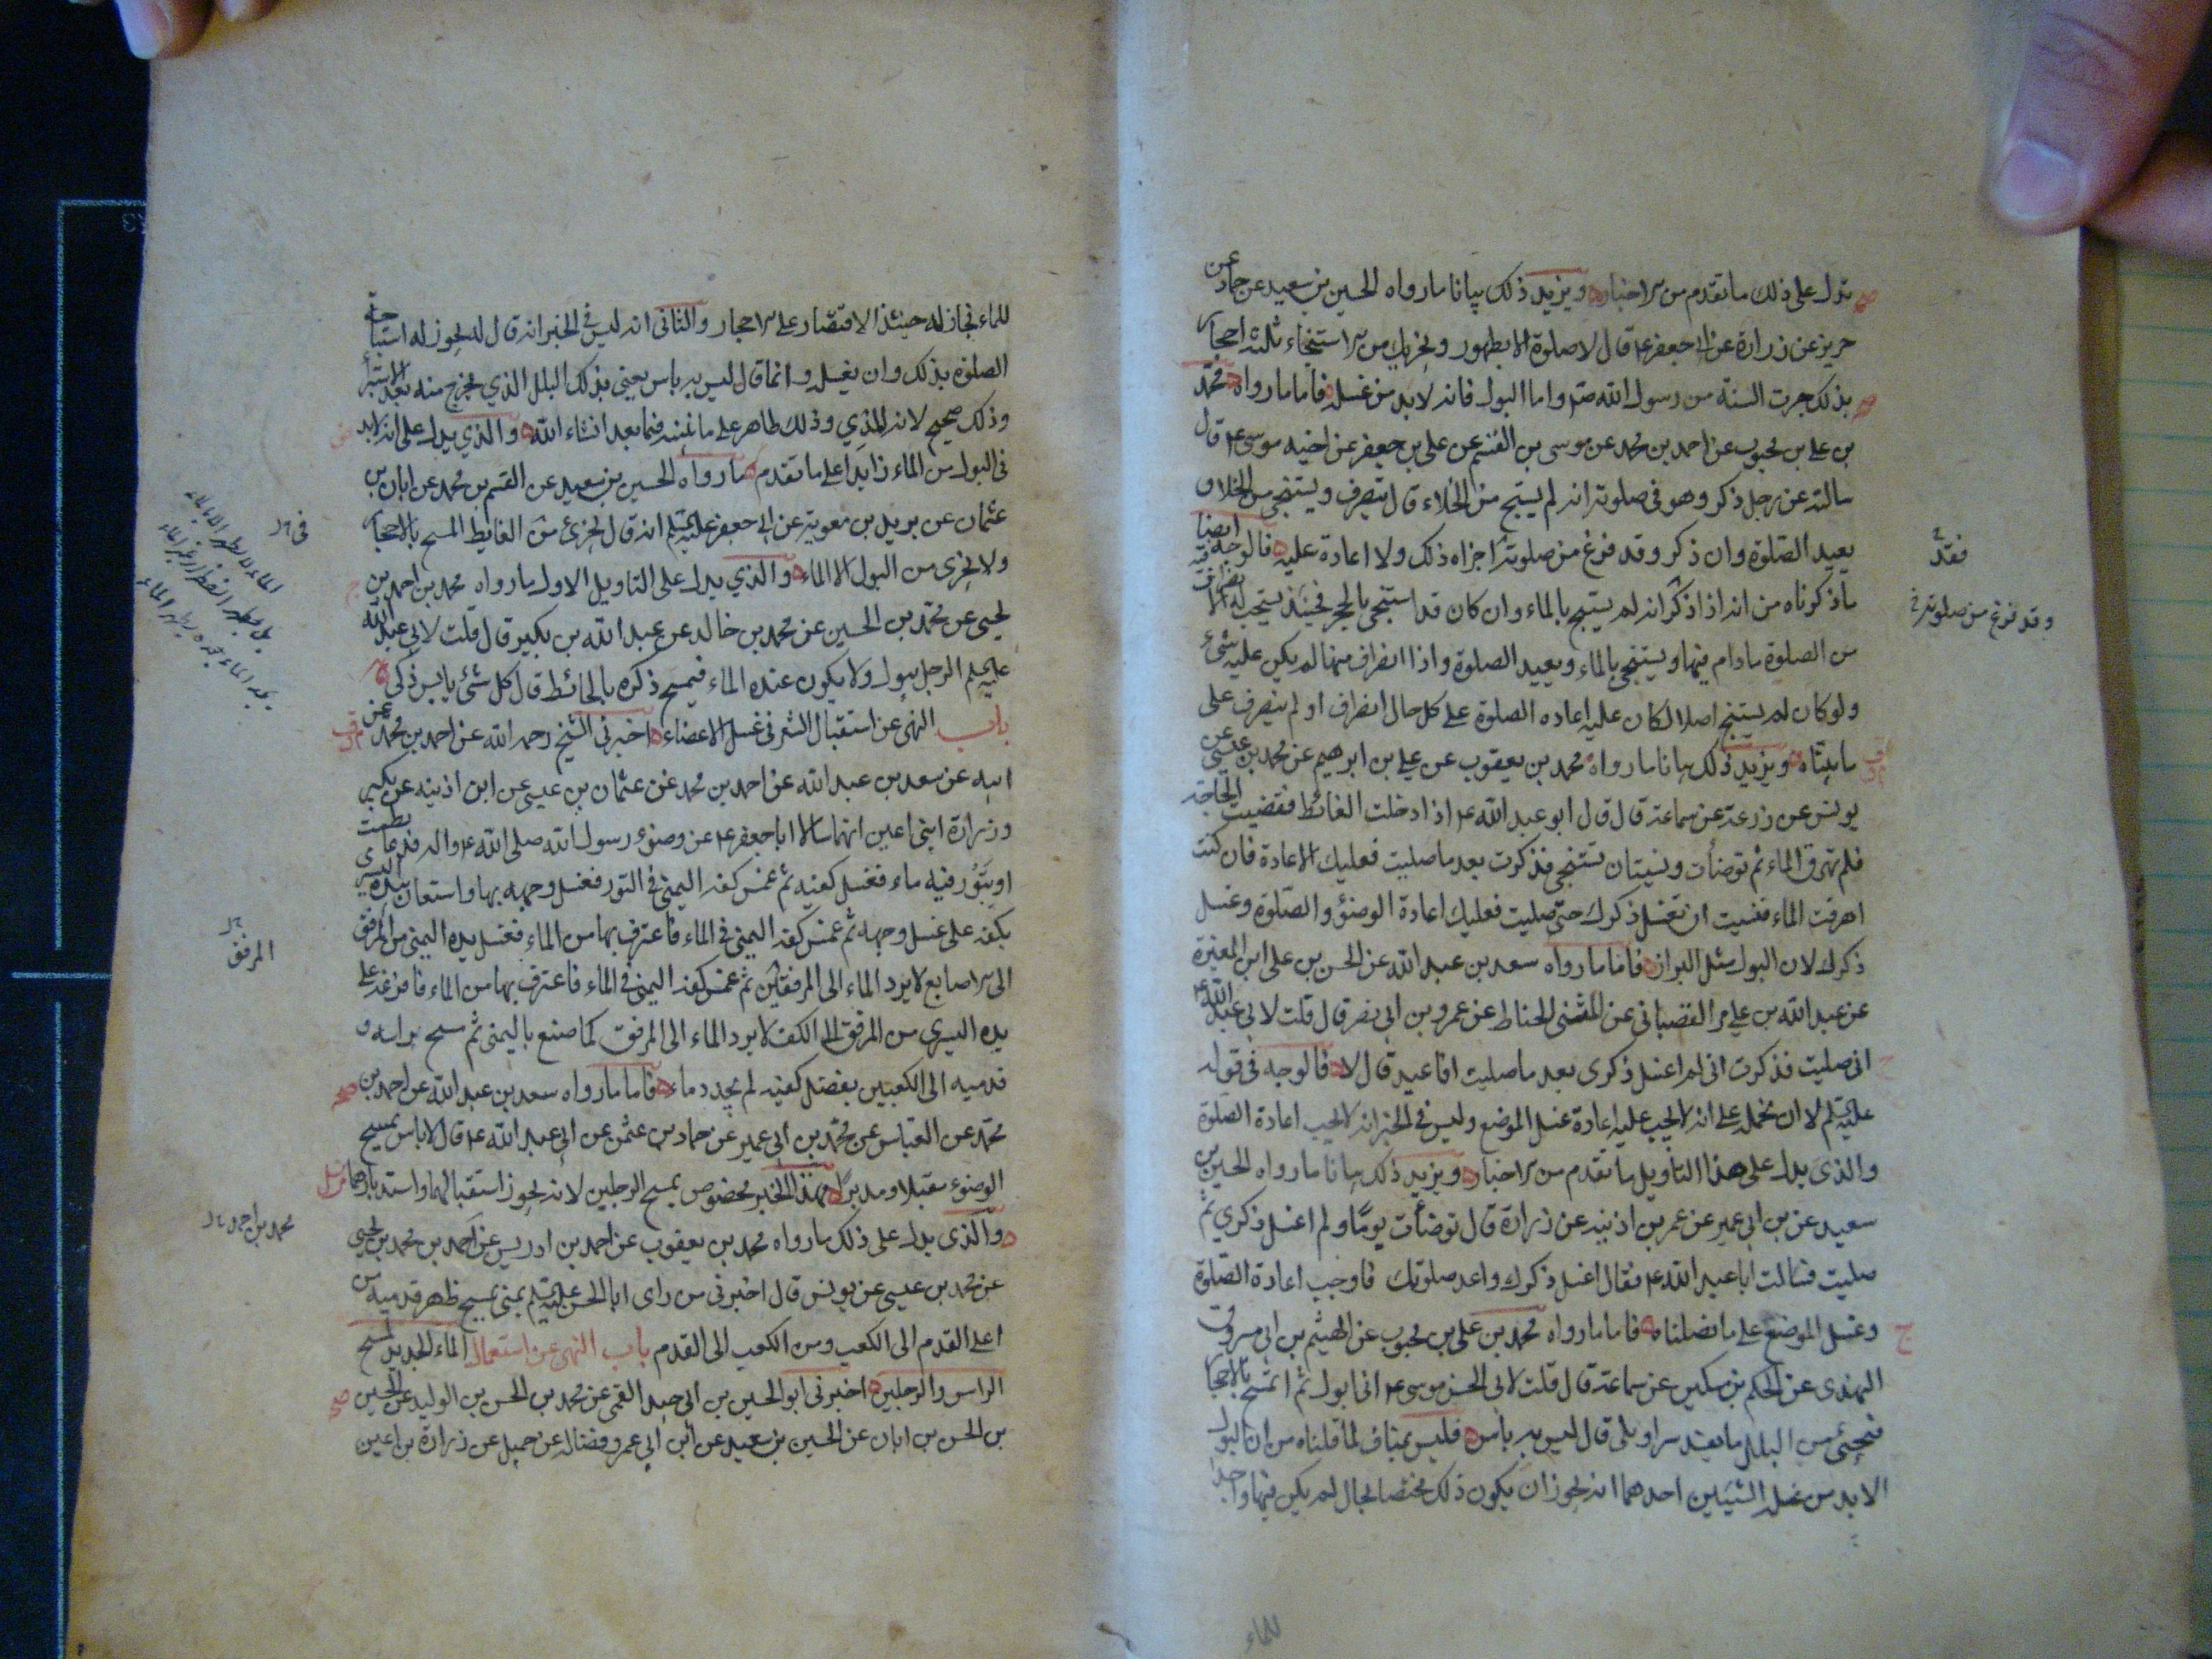 يدل على ذلك ما تقدم من الاخبار ويزيد ذلك بيانا ما رواه الحسين بن سعيد عن حماد عن
حريز عن زرارة عن ابي جعفر ع قال لا صلوة الا بطهور ويجزيك من الاستنجاء ثلثة احجار
بذلك جرت السنة من رسول الله ص واما البول فانه لابد من غسله فاما ما رواه محمد
بن علي بن محبوب عن احمد بن محمد عن موسى بن القسم عن علي بن جعفر عن اخيه موسى ع قال
سالته عن رجل ذكر وهو في صلوته انه لم يستنج من الخلاء قال ينصرف ويستنجي من الخلاء و
يعيد الصلوة وان ذكر وقد فرغ من صلوته اجزاه ذلك ولا اعادة عليه فالوجه فيه ايضا
ما ذكرناه من انه اذا ذكر انه لم يستنج بالماء وان كان قد استنجى بالحجر فحينئذ يستحب له الانصراف
من الصلوة ما دام فيها ويستنجي بالماء ويعيد الصلوة واذا انصرف منها لم يكن عليه شئ
ولو كان لم يستنج اصلا لكان عليه اعاده الصلوة على كل حال انصراف او لم ينصرف على
ما بيناه ويزيد ذلك بيانا ما رواه محمد بن يعقوب عن علي بن ابرهيم عن محمد بن عيسى عن
يونس عن زرعة عن سماعة قال قال ابو عبد الله ع اذا دخلت الغائط فقضيت الحاجة
فلم تهرق الماء ثم توضأت ونسيت ان تستنجي فذكرت بعد ما صليت فعليك الاعادة فان كنت
اهرقت الماء فنسيت ان تغسل ذكرك حتى صليت فعليك اعادة الوضؤ والصلوة وغسل
ذكرك لان البول مثل البراز فاما ما رواه سعد بن عبد الله عن الحسن بن علي ابن المغيرة
عن عبد الله بن علي القصباني عن المثنى الحناط عن عمرو بن ابي نصر قال قلت لابي عبد الله ع
اني صليت فذكرت اني لم اغسل ذكري بعد ما صليت افاعيد قال لا فالوجه في قوله
عليه السلم لا ان نحمله على انه لا يجب عليه اعادة غسل الموضع وليس في الخبر انه لا يجب اعادة الصلوة
والذي يدل على هذا التاويل ما تقدم من الاخبار ويزيد ذلك بيانا ما رواه الحسين بن
سعيد عن بن ابي عمير عن عمر بن اذينه عن زرارة قال توضأت يوما ولم اغسل ذكري ثم
صليت فسالت ابا عبد الله ع فقال اغسل ذكرك واعد صلوتك فاوجب اعادة الصلوة
وغسل الموضع على ما فصلناه فاما ما رواه محمد بن علي بن محبوب عن الهيثم بن ابي مسروق
النهدي عن الحكم بن مسكين عن سماعة قال قلت لابي الحسن موسى ع اني ابول ثم اتمسح بالاحجار
فيجئ من البلل ما يفسد سراويلي قال ليس به باس فليس بمناف لما قلناه من ان البول
لابد من غسله لشيئين احدهما انه يجوز ان يكون ذلك مختصا بحال لم يكن فيها واجدا
للماء
فقد
وقد فرغ من صلوته خ
للماء فجاز له حينئذ الاقتصار على الاحجار والثاني انه ليس في الخبر انه قال له يجوز له استباحة
الصلوة بذلك وان يغسله وانما قال ليس به باس يعني بذلك البلل الذي يخرج منه بعد الاستبراء
وذلك صحيح لانه المذي وذلك طاهر على ما نبينه فيما بعد انشاء الله والذي يدل على انه لابد
في البول من الماء زايدا على ما تقدم ما رواه الحسين بن سعيد عن القسم بن محمد عن ابان بن
عثمان عن بريد بن معوية عن ابي جعفر عليه السلم انه قال يجزئ من الغايط المسح بالاحجار
ولا يجزى من البول الا الماء والذي يدل على التاويل الاول ما رواه محمد بن احمد بن
يحيى عن محمد بن الحسين عن محمد بن خالد عن عبد الله بن بكير قال قلت لابي عبد الله
عليه السلم الرجل يبول ولا يكون عنده الماء فيمسح ذكره بالحائط قال كل شئ يابس ذكي
باب النهي عن استقبال الشعر في غسل الاعضاء اخبرني الشيخ رحمه الله عن احمد بن محمد عن
ابيه عن سعد بن عبد الله عن احمد بن محمد عن عثمان بن عيسى عن ابن اذينه عن بكير
وزرارة ابنى اعين انهما سالا ابا جعفر ع عن وضوء رسول الله صلى الله ع واله فدعا بطست
او بتور فيه ماء فغسل كفيه ثم غمس كفه اليمنى في التور فغسل وجهه بها واستعان بيده اليسرى
بكفه على غسل وجهه ثم غمس كفه اليمنى في الماء فاغترف بها من الماء فغسل يده اليمنى من المرفق
الى الاصابع لا يرد الماء الى المرفقين ثم غمس كفه اليمنى في الماء فاغترف بها من الماء فافرغه على
يده اليسرى من المرفق الى الكف لا يرد الماء الى المرفق كما صنع باليمنى ثم مسح براسه و
قدميه الى الكعبين بفضل كفيه لم يجدد ماء فاما ما رواه سعد بن عبد الله عن احمد بن
محمد عن العباس عن محمد بن ابي عمير عن حماد بن عثمن عن ابي عبد الله ع قال لا باس بمسح
الوضوء مقبلا ومدبرا فهذا الخبر مخصوص بمسح الرجلين لانه يجوز استقبالهما واستدبارهما
والذي يدل على ذلك ما رواه محمد بن يعقوب عن احمد بن ادريس عن احمد بن محمد بن يحيى
عن محمد بن عيسى عن يونس قال اخبرني من راى ابا الحسن عليه السلم بمنى يمسح ظهر قدميه من
اعلى القدم الى الكعب ومن الكعب الى القدم باب النهي عن استعمال الماء الجديد لمسح
الراس والرجلين اخبرني ابو الحسين بن ابي جيد القمي عن محمد بن الحسن بن الوليد عن الحسين
بن الحسن بن ابان عن الحسين بن سعيد عن ابن ابي عمير وفضالة عن جميل عن زرارة بن اعين
المرفق
محمد بن احمد